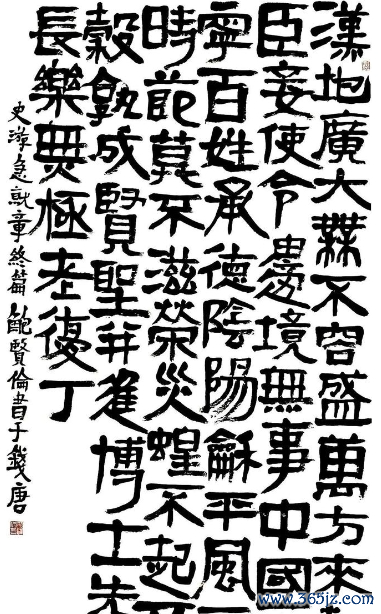 漢地廣大無不容盛萬方來
臣妾使令邊境無事中國
寧百姓承德陰陽龢平風
時節莫不滋榮災蝗不起
穀孰成賢聖并進博士先
長樂無極老復丁
史游急就章終篇鮑賢倫書于錢唐
www.365jz.com